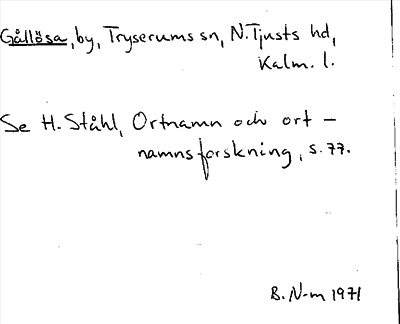 Gållösa, by, Tryserums sn, N. Tjusts hd,
Kalm. l.
Se H. Ståhl, Ortnamn och ort-
namnsforskning, s. 77.
B. N-m 1971